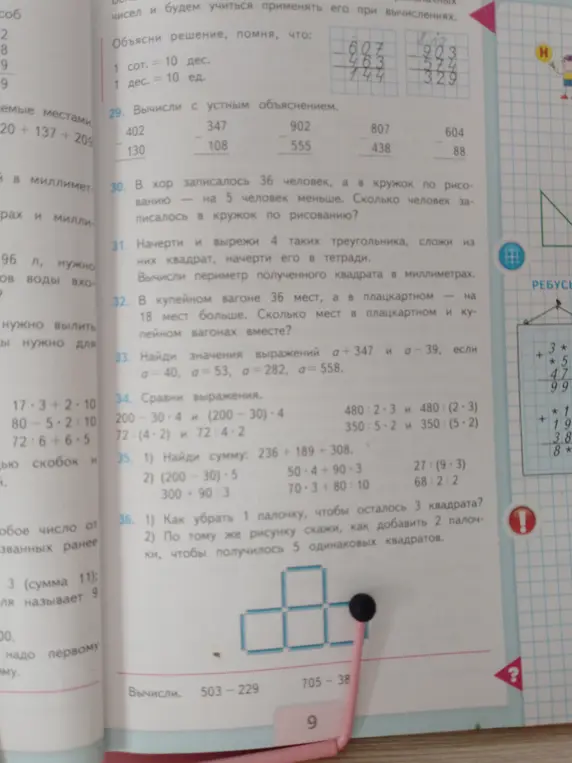 чисел и будем учиться применять его при вычислениях.
Объясни решение, помня, что:
1 сот. = 10 дес.
1 дес. = 10 ед.
607
463
144
903
574
329
29. Вычисли с устным объяснением.
402 347 902 807 604
130 108 555 438 88
30. В хор записалось 36 человек, а в кружок по рисо-
ванию — на 5 человек меньше. Сколько человек за-
писалось в кружок по рисованию?
31. Начерти и вырежи 4 таких треугольника, сложи из
них квадрат, начерти его в тетради.
Вычисли периметр полученного квадрата в миллиметрах.
32. В купейном вагоне 36 мест, а в плацкартном — на
18 мест больше. Сколько мест в плацкартном и ку-
пейном вагонах вместе?
33. Найди значения выражений a + 347 и a − 39, если
a = 40, a = 53, a = 282, a = 558.
34. Сравни выражения.
200 − 30 · 4 и (200 − 30) · 4 480 : 2 · 3 и 480 : (2 · 3)
72 : (4 · 2) и 72 : 4 · 2 350 : 5 · 2 и 350 : (5 · 2)
35. 1) Найди сумму: 236 + 189 + 308.
2) (200 − 30) · 5 50 · 4 + 90 · 3 27 : (9 · 3)
300 + 90 : 3 70 · 3 + 80 : 10 68 : 2 : 2
36. 1) Как убрать 1 палочку, чтобы осталось 3 квадрата?
2) По тому же рисунку скажи, как добавить 2 палоч-
ки, чтобы получилось 5 одинаковых квадратов.
Вычисли. 503 − 229 705 − 38
9
соб
2
8
9
9
местами
20 + 137 + 209
в миллимет-
рах и милли-
96 л, нужно
ов воды вхо-
?
нужно вылить
ы нужно для
17 · 3 + 2 · 10
80 − 5 · 2 : 10
72 : 6 + 6 · 5
ью скобок и
обое число от
званных ранее
3 (сумма 11);
ля называет 9
00.
надо первому
му.
Н
РЕБУСЫ
+ 3 *
* 5
4 7
9 9
+ * 1
+ 1 9
3 8
8 *
!
?